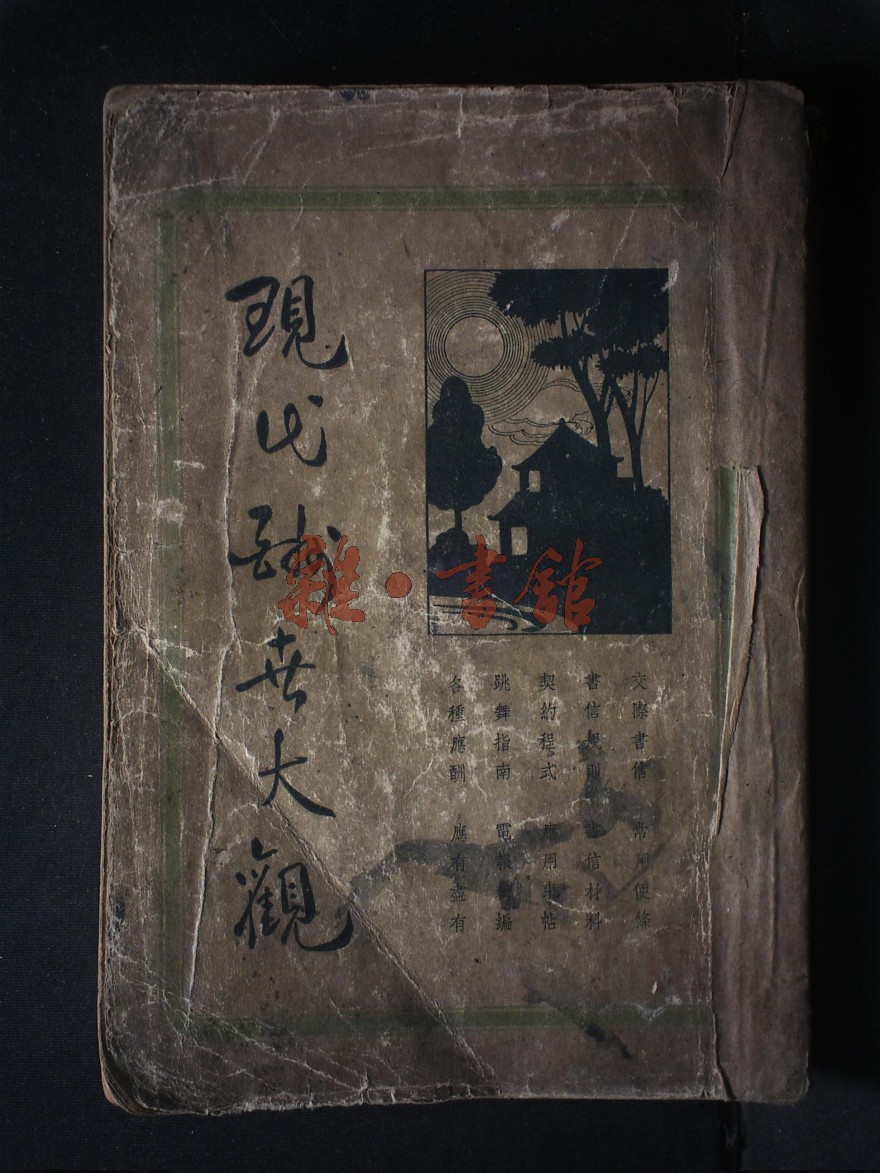 交際書信 常用便條
書信規則 書信材料
契約程式 應用柬帖
跳舞指南 電報 編
各種應酬 應有盡有
現代酬世大觀
雜·書館